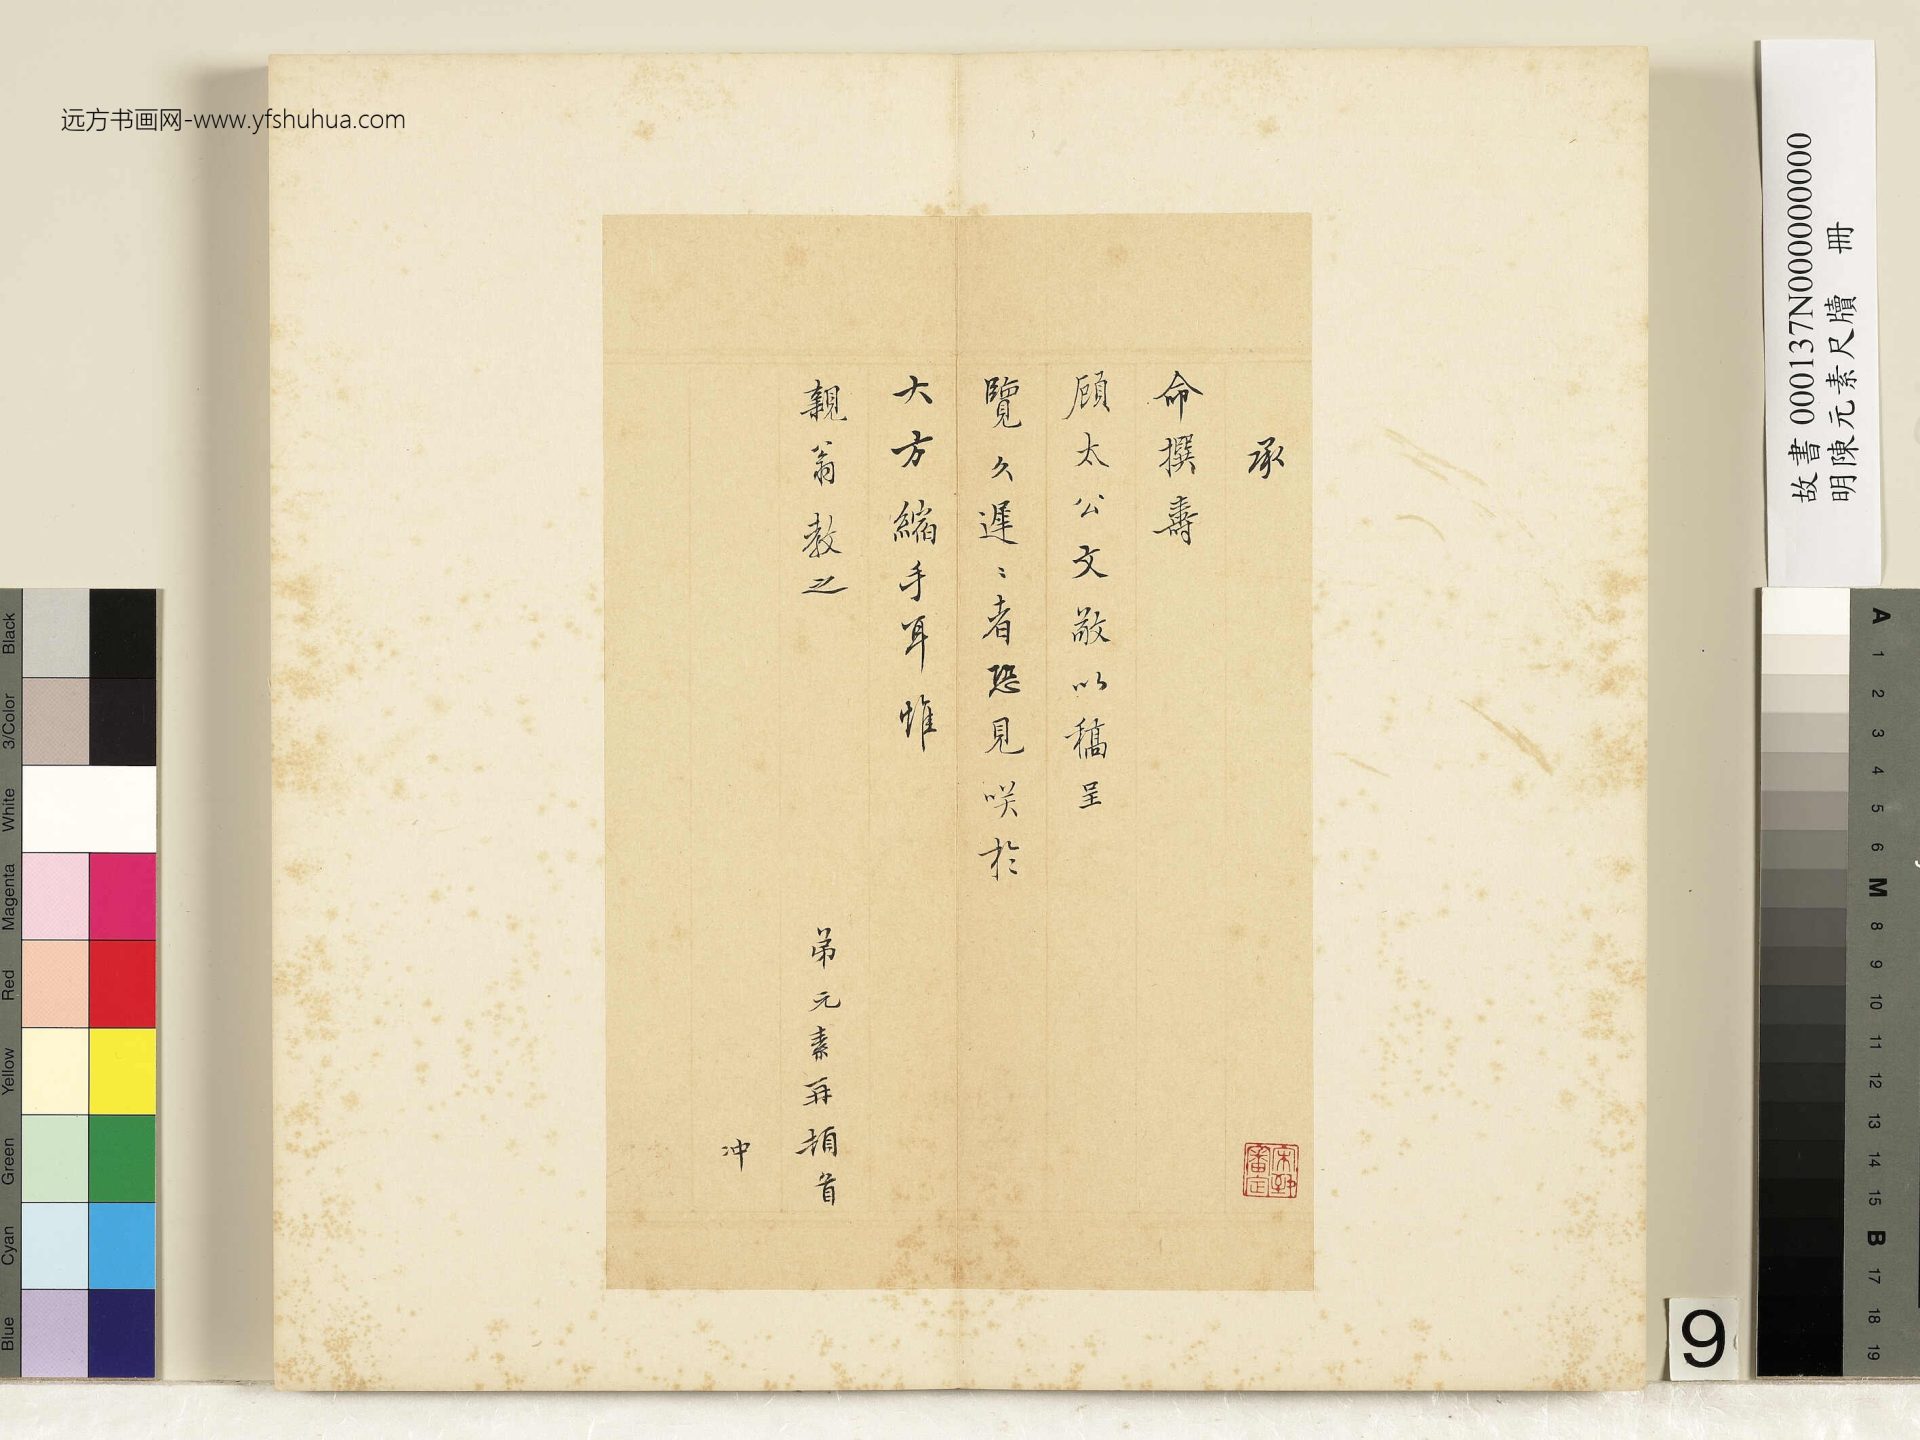 远方书画网-www.yfshuhua.com
承
命撰壽
顾太公文敬以稿呈
覽久遲〻者恐見咲於
大方縮手耳惟
親翁教之
弟元素再頓首
冲
故書 000137N000000000
明陳元素尺牘 冊
9
Black
3/Color
White
Magenta
Red
Yellow
Green
Cyan
Blue
A
1
2
3
4
5
6
M
8
9
10
11
12
13
14
15
B
17
18
19